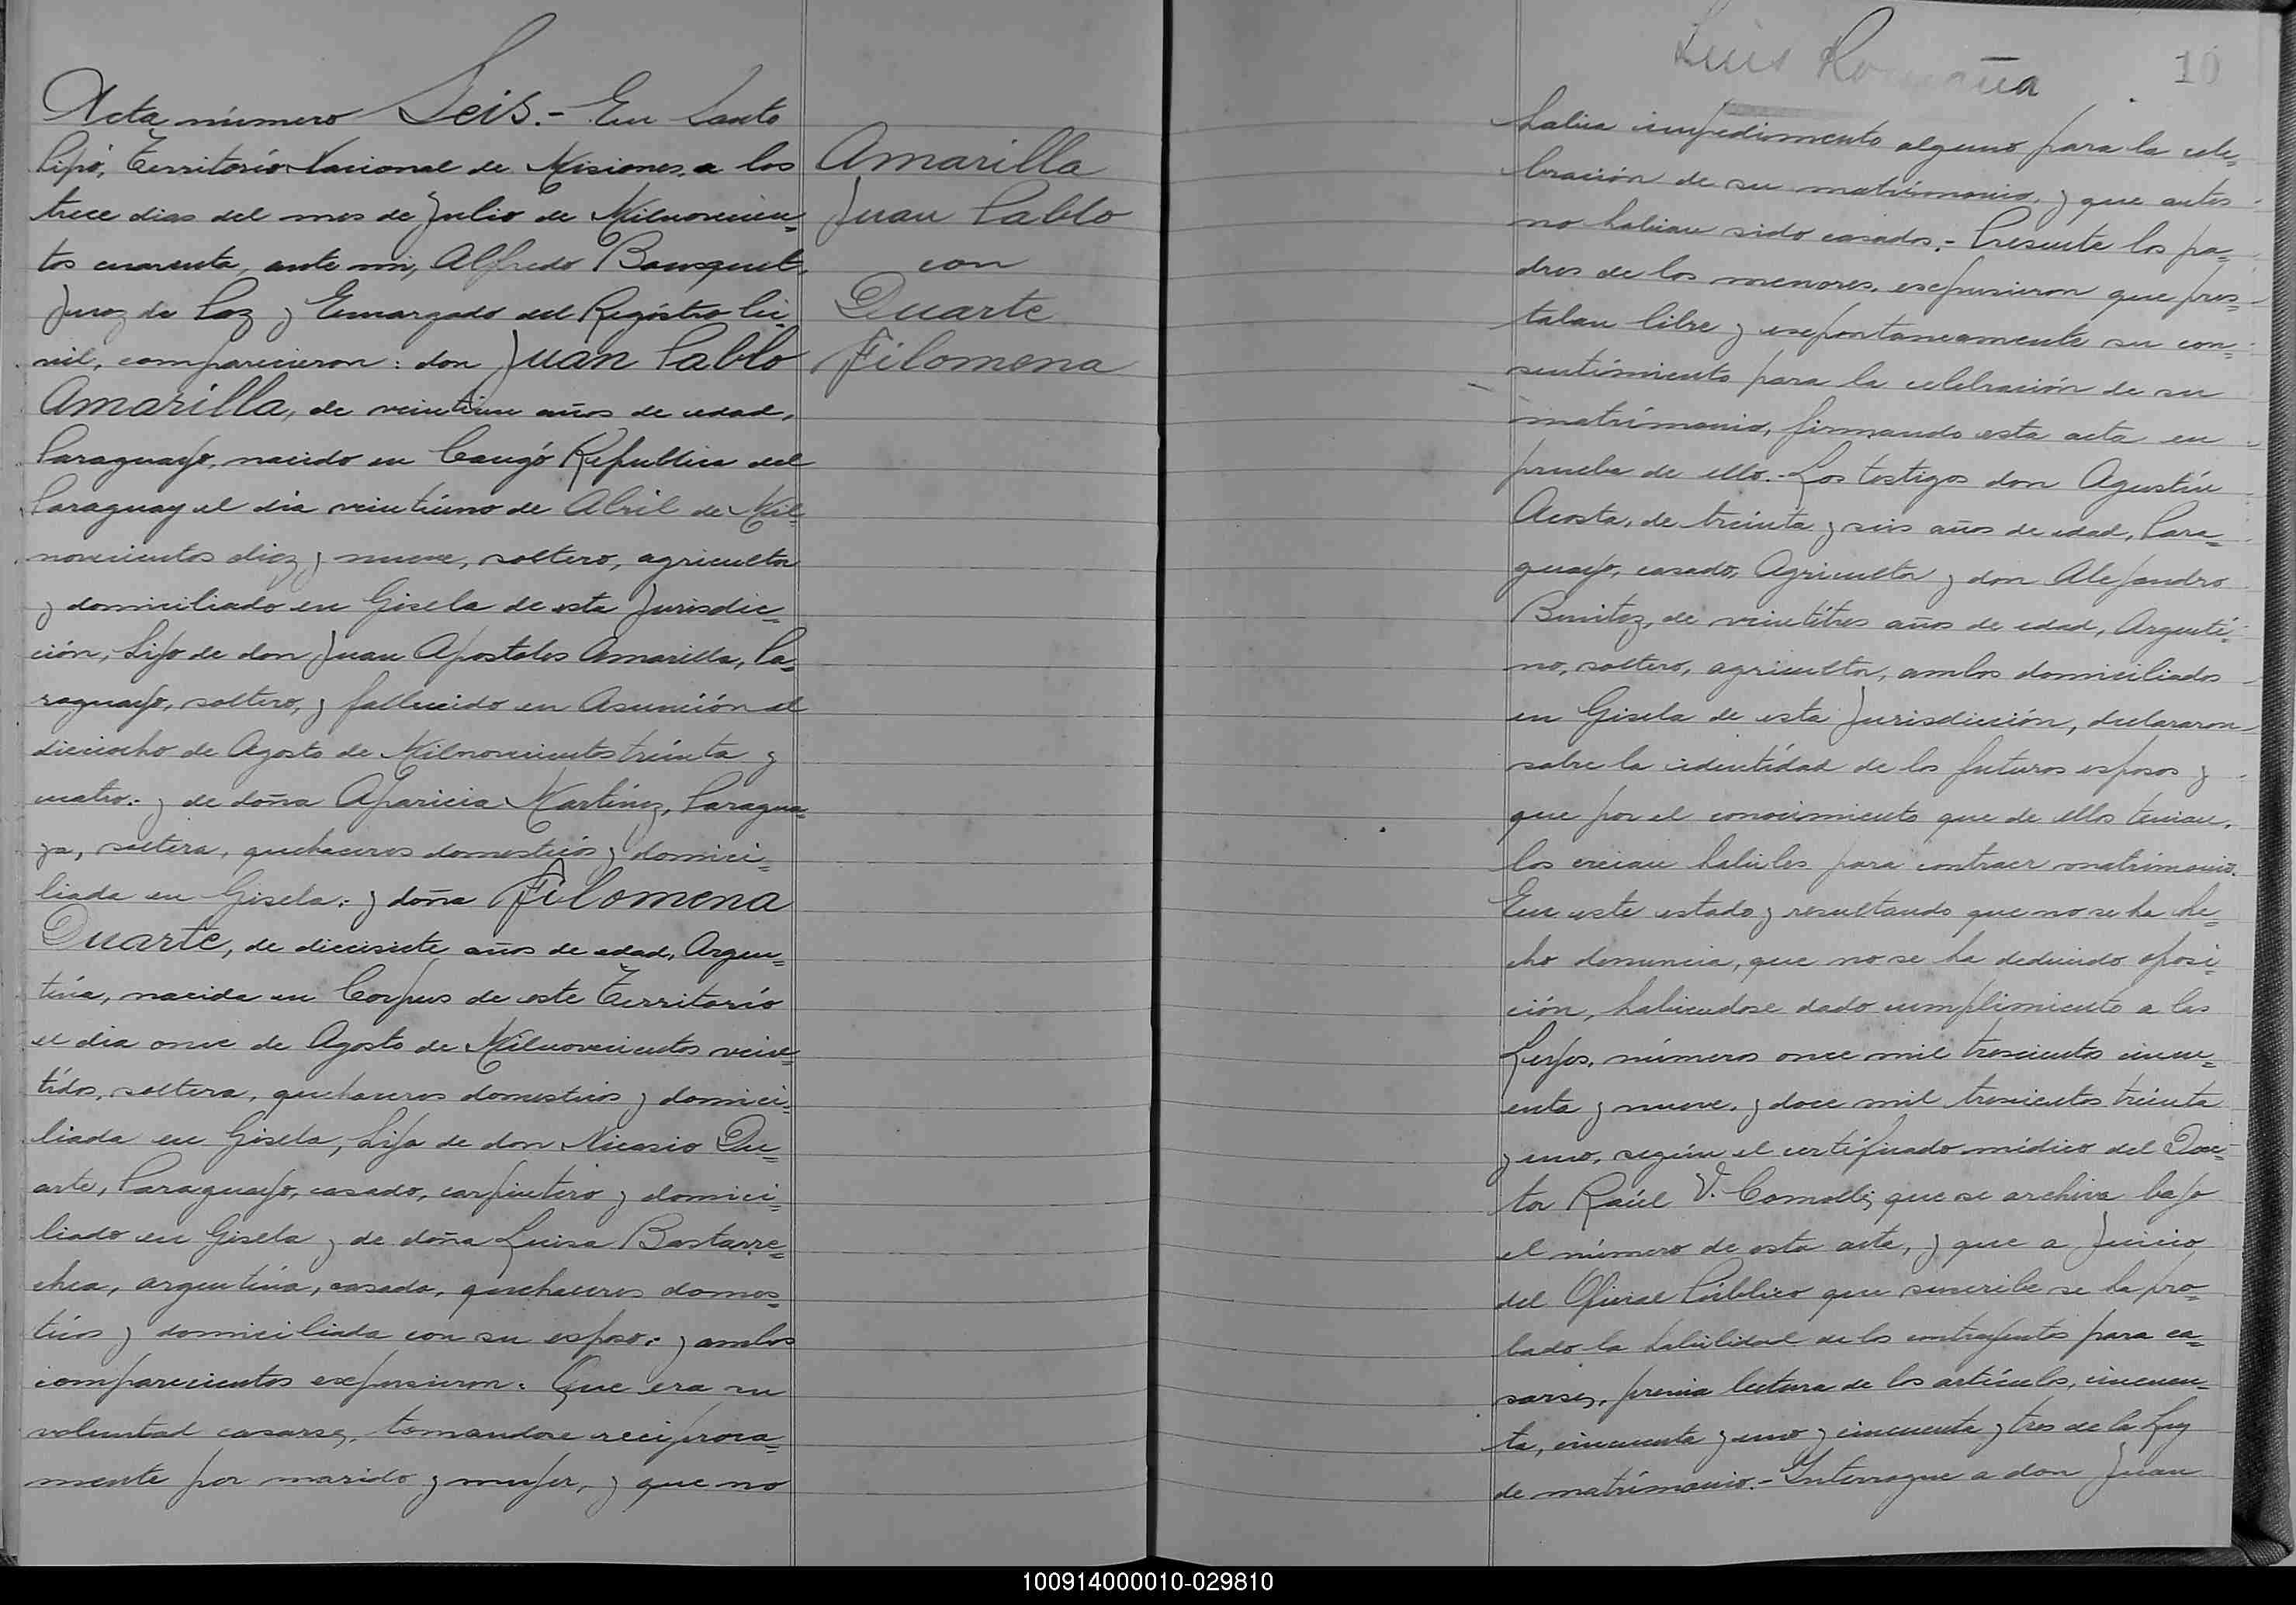 Acta número Seis.- En Santo
Pipó, Territorio Nacional de Misiones, a los
trece dias del mes de Julio de Milnovecien=
tos cuarenta, ante mi, Alfredo Bousquet,
Juez de Paz y Encargado del Registro Ci=
vil, comparecieron: don Juan Pablo
Amarilla, de veintiun años de edad,
Paraguayo, nacido en Caugó Republica del
Paraguay el dia veintiuno de Abril de Mil=
novecientos diez y nueve, soltero, agricultor
y domiciliado en Gisela de esta Jurisdic=
ción, hijo de don Juan Apostoles Amarilla, Pa=
raguayo, soltero, y fallecido en Asunción el
dieciocho de Agosto de Milnovecientos treinta y
cuatro: y de doña Aparicia Martinez, Paragua=
ya, soltera, quehaceres domesticos y domici=
liada en Gisela: y doña Filomena
Duarte, de diecisiete años de edad, Argen=
tina, nacida en Corpus de este Territorio
el dia once de Agosto de Milnovecientos vein=
tidos, soltera, quehaceres domesticos y domici=
liada en Gisela, hija de don Nicasio Du=
arte, Paraguayo, casado, carpintero y domici=
liado en Gisela y de doña Luisa Bastarre=
chea, argentina, casada, quehaceres domes=
ticos y domiciliada con su esposo: y ambos
comparecientes expusieron: Que era su
voluntad casarse, tomandose reciproca=
mente por marido y mujer, y que no
Amarilla
Juan Pablo
con
Duarte
Filomena
Luis
10
habia impedimento alguno para la cele=
bración de su matrimonio, y que antes
no habian sido casados.- Presente los pa=
dres de los menores, expusieron que pres=
taban libre y espontaneamente su con=
sentimiento para la celebración de su
matrimonio, firmando esta acta en
prueba de ello.- Los testigos don Agustin
Acosta, de treinta y seis años de edad, Para=
guayo, casado, Agricultor y don Alejandro
Benitez, de veintitres años de edad, Argenti=
no, soltero, agricultor, ambos domiciliados
en Gisela de esta Jurisdicción, declararon
sobre la identidad de los futuros esposos y
que por el conocimiento que de ellos tenian,
los creian habiles para contraer matrimonio.
En este estado y resultando que no se ha he=
cho denuncia, que no se ha deducido oposi=
ción, habiendose dado cumplimiento a las
Leyes, números once mil trescientos cincu=
enta y nueve, y doce mil trescientos treinta
y uno, según el certificado médico del Doc=
tor Raúl V. Comolli, que se archiva bajo
el número de esta acta, y que a Juicio
del Oficial Público que suscribe se ha pro=
bado la habilidad de los contrayentes para ca=
sarse, previa lectura de los artículos, cincuen=
ta, cincuenta y uno y cincuenta y tres de la Ley
de matrimonio.- Interrogue a don Juan
100914000010-029810